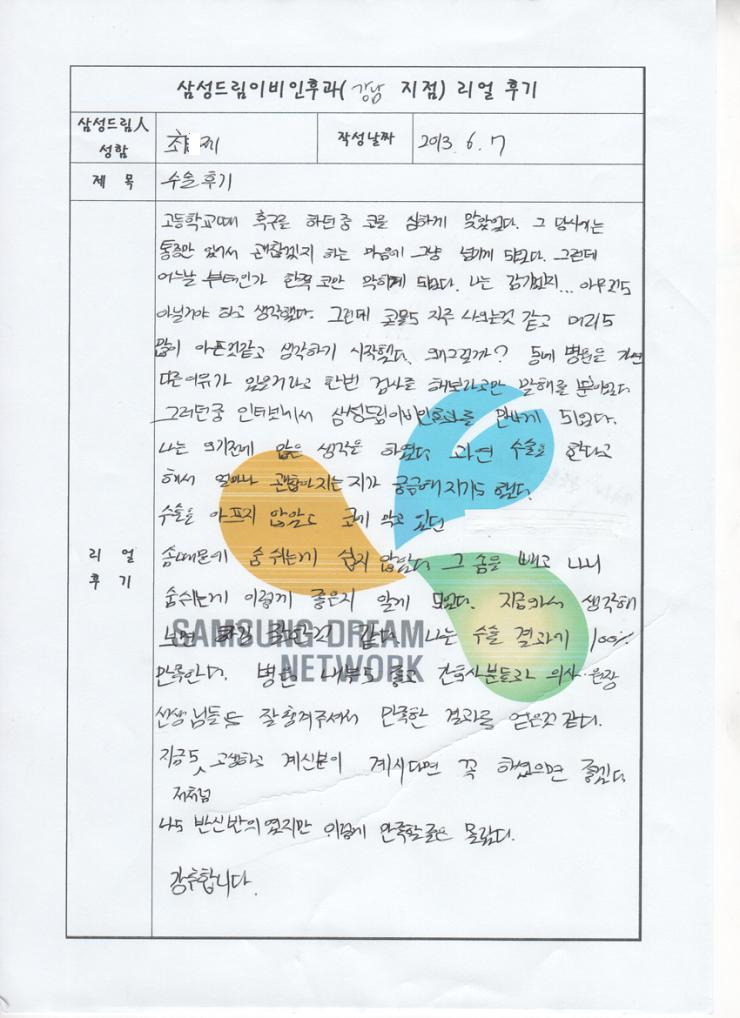 삼성드림이비인후과( 강남 지점) 리얼 후기
삼성드림人
성함
최 제
작성날짜
2013. 6. 7
제 목
수술후기
리 얼
후 기
고등학교때 축구를 하던중 코를 심하게 맞았었다. 그 당시에는
통증만 있어서 괜찮겠지 하는 마음에 그냥 넘기게 되었다. 그런데
어느날 부터인가 한쪽 코만 막히게 되었다. 나는 감기겠지... 아무래도
아닐거야 하고 생각했다. 그런데 콧물도 자주 나오는것 같고 머리도
많이 아픈것같고 생각하기 시작했다. 왜그럴까? 동네 병원은
다른이유가 있을거라고 한번 검사를 해보라고만 말해줄 뿐이었다
그러던중 인터넷에서 삼성드림이비인후과를 만나게 되었다.
나는 의기전에 많은 생각을 하였다 과연 수술을 한다고
해서 얼마나 괜찮아지는지가 궁금해지기도 했다.
수술은 아프지 않았고 코에 막고 있던
솜때문에 숨쉬는게 쉽지 않았다 그 솜을 빼고 나니
숨쉬는게 이렇게 좋은지 알게 되었다. 지금와서 생각해
보면 잘한거 같다. 나는 수술 결과에 100%
만족한다. 병원 내부도 좋고 간호사분들과 의사·원장
선생님들도 잘챙겨주셔서 만족한 결과를 얻은것 같다.
지금도 저처럼 고생하고 계신분이 계시다면 꼭 하셨으면 좋겠다
나도 반신반의 였지만 이렇게 만족할줄은 몰랐다.
강추합니다.
SAMSUNG DREAM
NETWORK